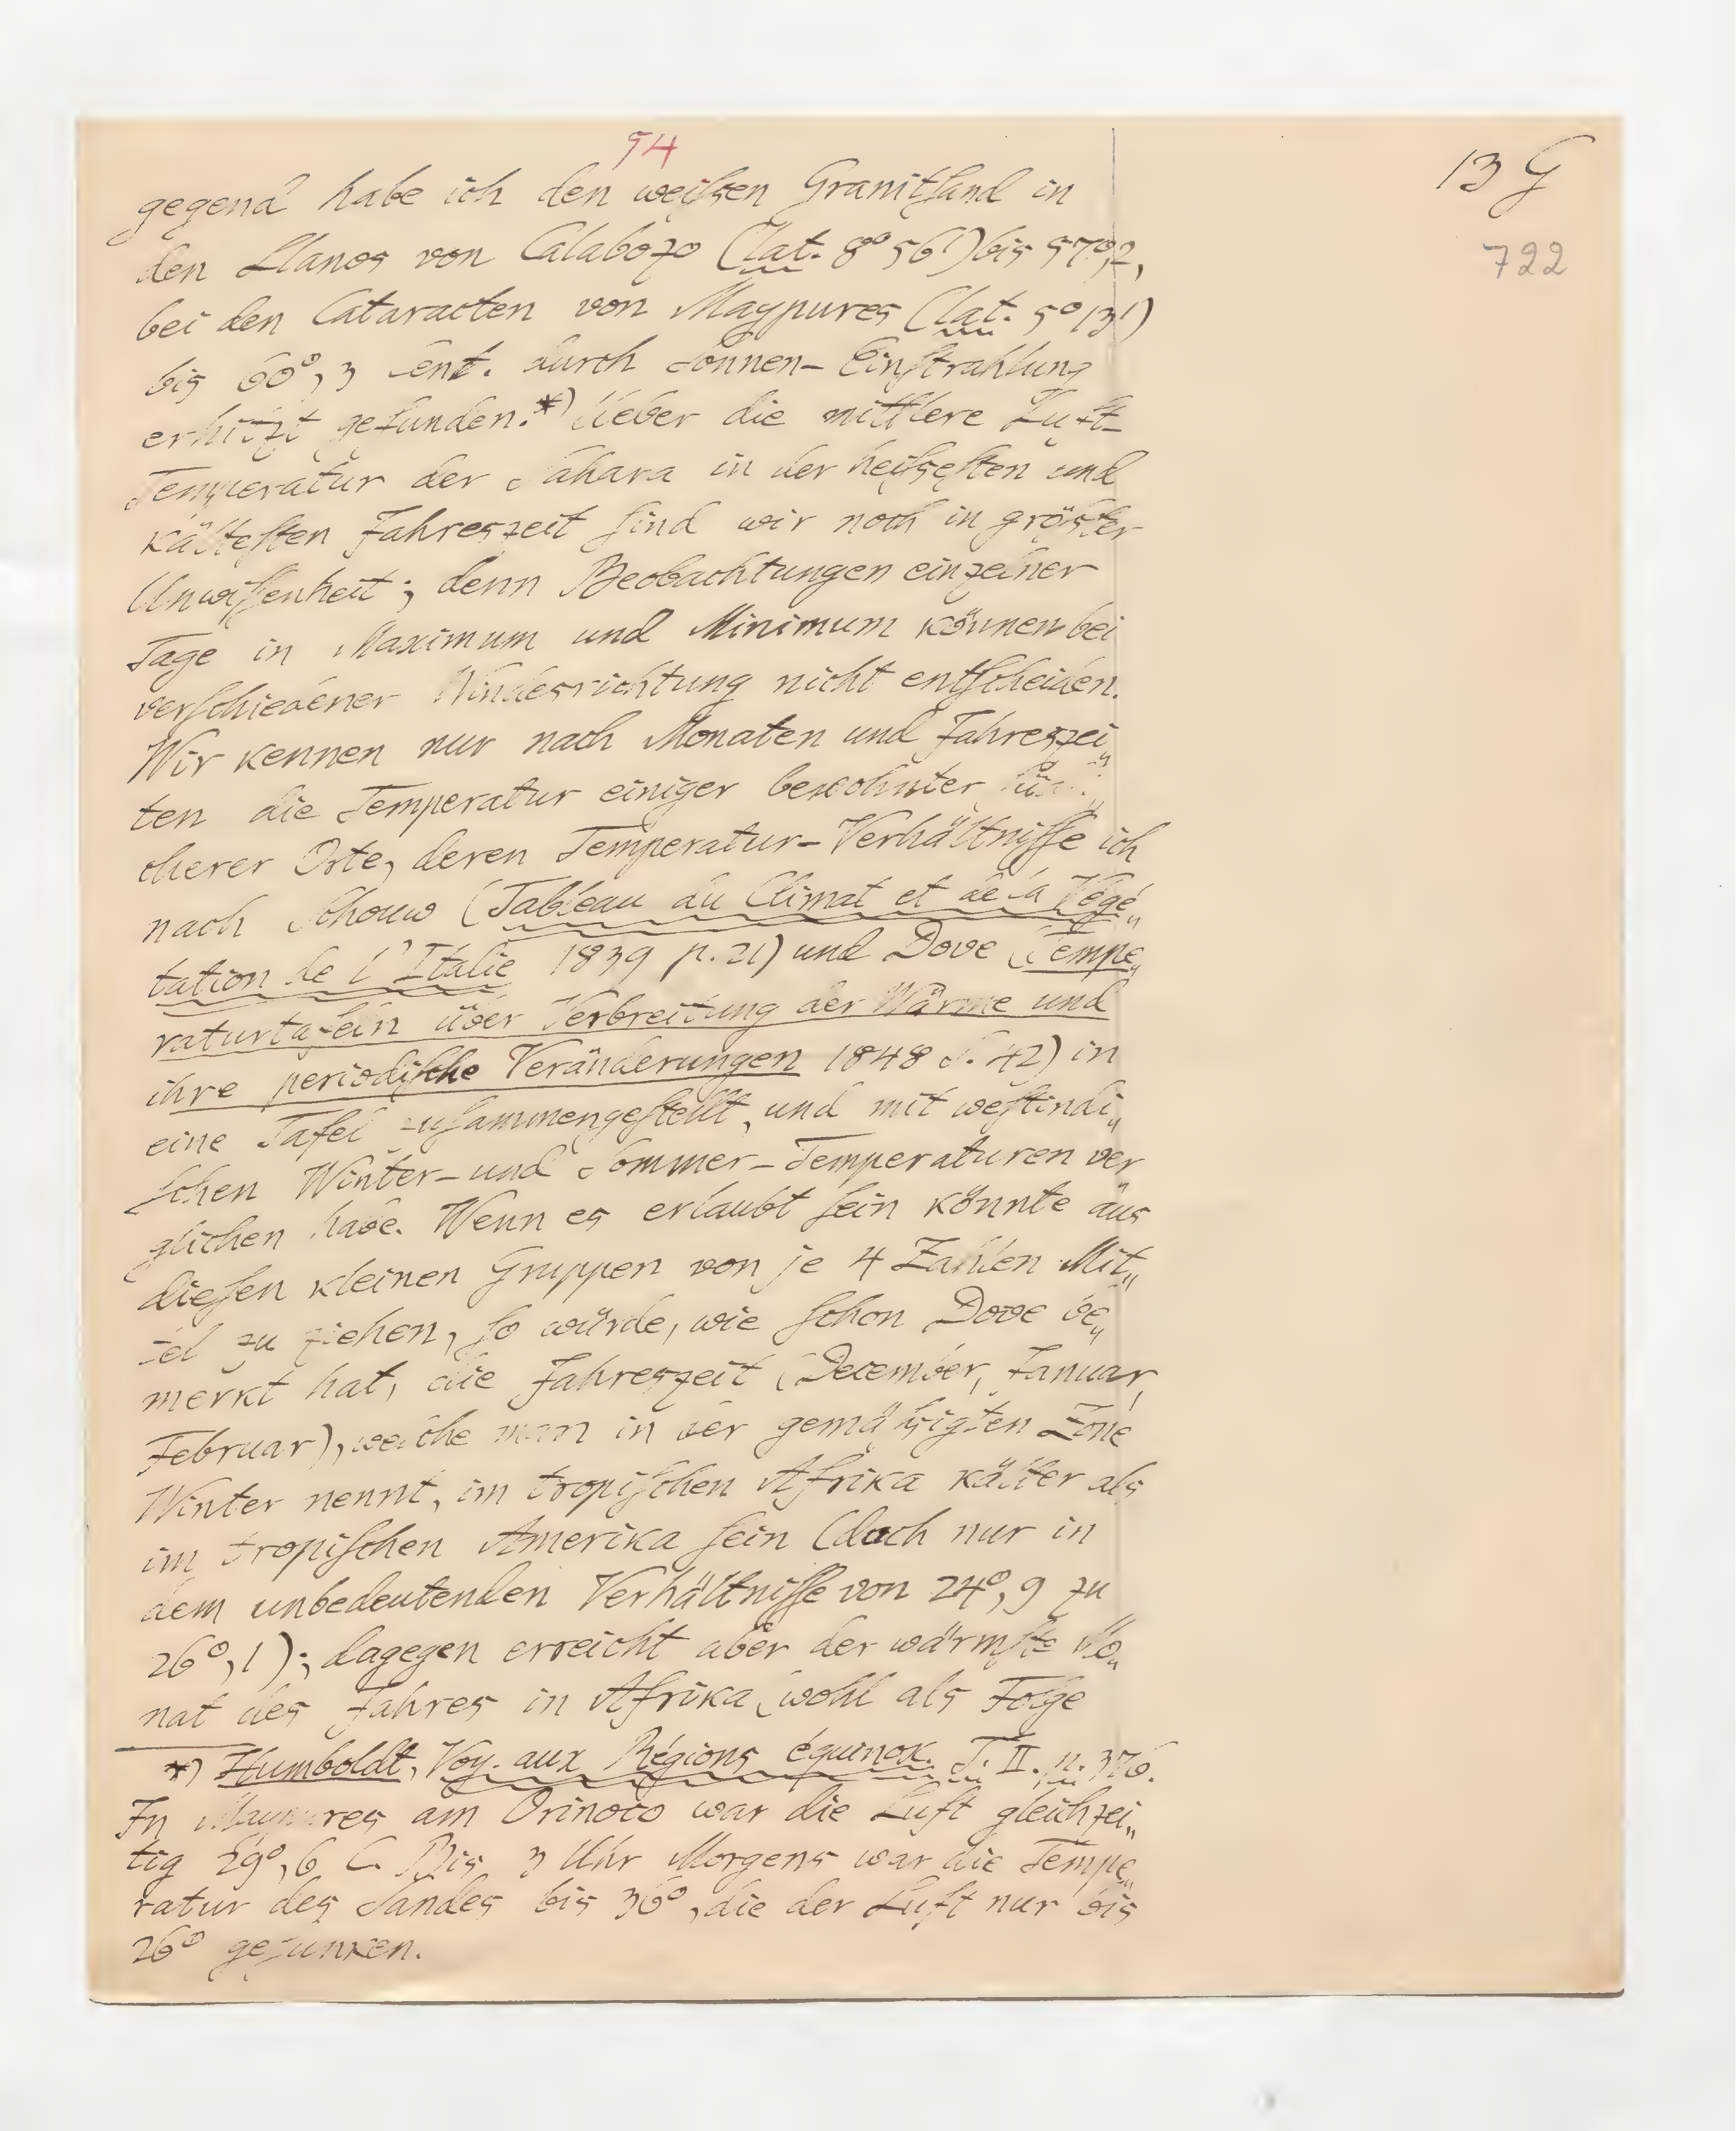 94
13 G
722
gegend habe ich den weißen Granitsand in
den Llanos von Calabozo (lat. 8° 56') bis 57°,2,
bei den Cataracten von Maypures (lat. 5° 13')
bis 60°,3 Cent. durch Sonnen-Einstrahlung
erhitzt gefunden.*) Ueber die mittlere Luft-
Temperatur der Sahara in der heißesten und
kältesten Jahreszeit sind wir noch in größter
Unwissenheit; denn Beobachtungen einzelner
Tage in Maximum und Minimum können bei
verschiedener Windesrichtung nicht entscheiden.
Wir kennen nur nach Monaten und Jahreszei„
ten die Temperatur einiger bewohnter
cherer Orte, deren Temperatur-Verhältnisse ich
nach Schouw (Tableau du Climat et de la Végé„
tation de l'Italie 1839 p. 21) und Dove (Tempe„
raturtafeln über Verbreitung der Wärme und
ihre periodische Veränderungen 1848 S. 42) in
eine Tafel zusammengestellt, und mit westindi„
schen Winter- und Sommer-Temperaturen ver
glichen habe. Wenn es erlaubt sein könnte aus
diesen kleinen Gruppen von je 4 Zahlen Mit„
tel zu ziehen, so würde, wie schon Dove be„
merkt hat, die Jahreszeit (December, Januar,
Februar), welche man in der gemäßigten Zone
Winter nennt, im tropischen Afrika kälter als
im tropischen Amerika sein (doch nur in
dem unbedeutenden Verhältnisse von 24°,9 zu
26°,1); dagegen erreicht aber der wärmste Mo„
nat des Jahres in Afrika (wohl als Folge
*) Humboldt, Voy. aux Régions équinox. T. II. p. 376.
In Maypures am Orinoco war die Luft gleichzei„
tig 29°,6 C. Bis 3 Uhr Morgens war die Tempe„
ratur des Sandes bis 36°, die der Luft nur bis
26° gesunken.